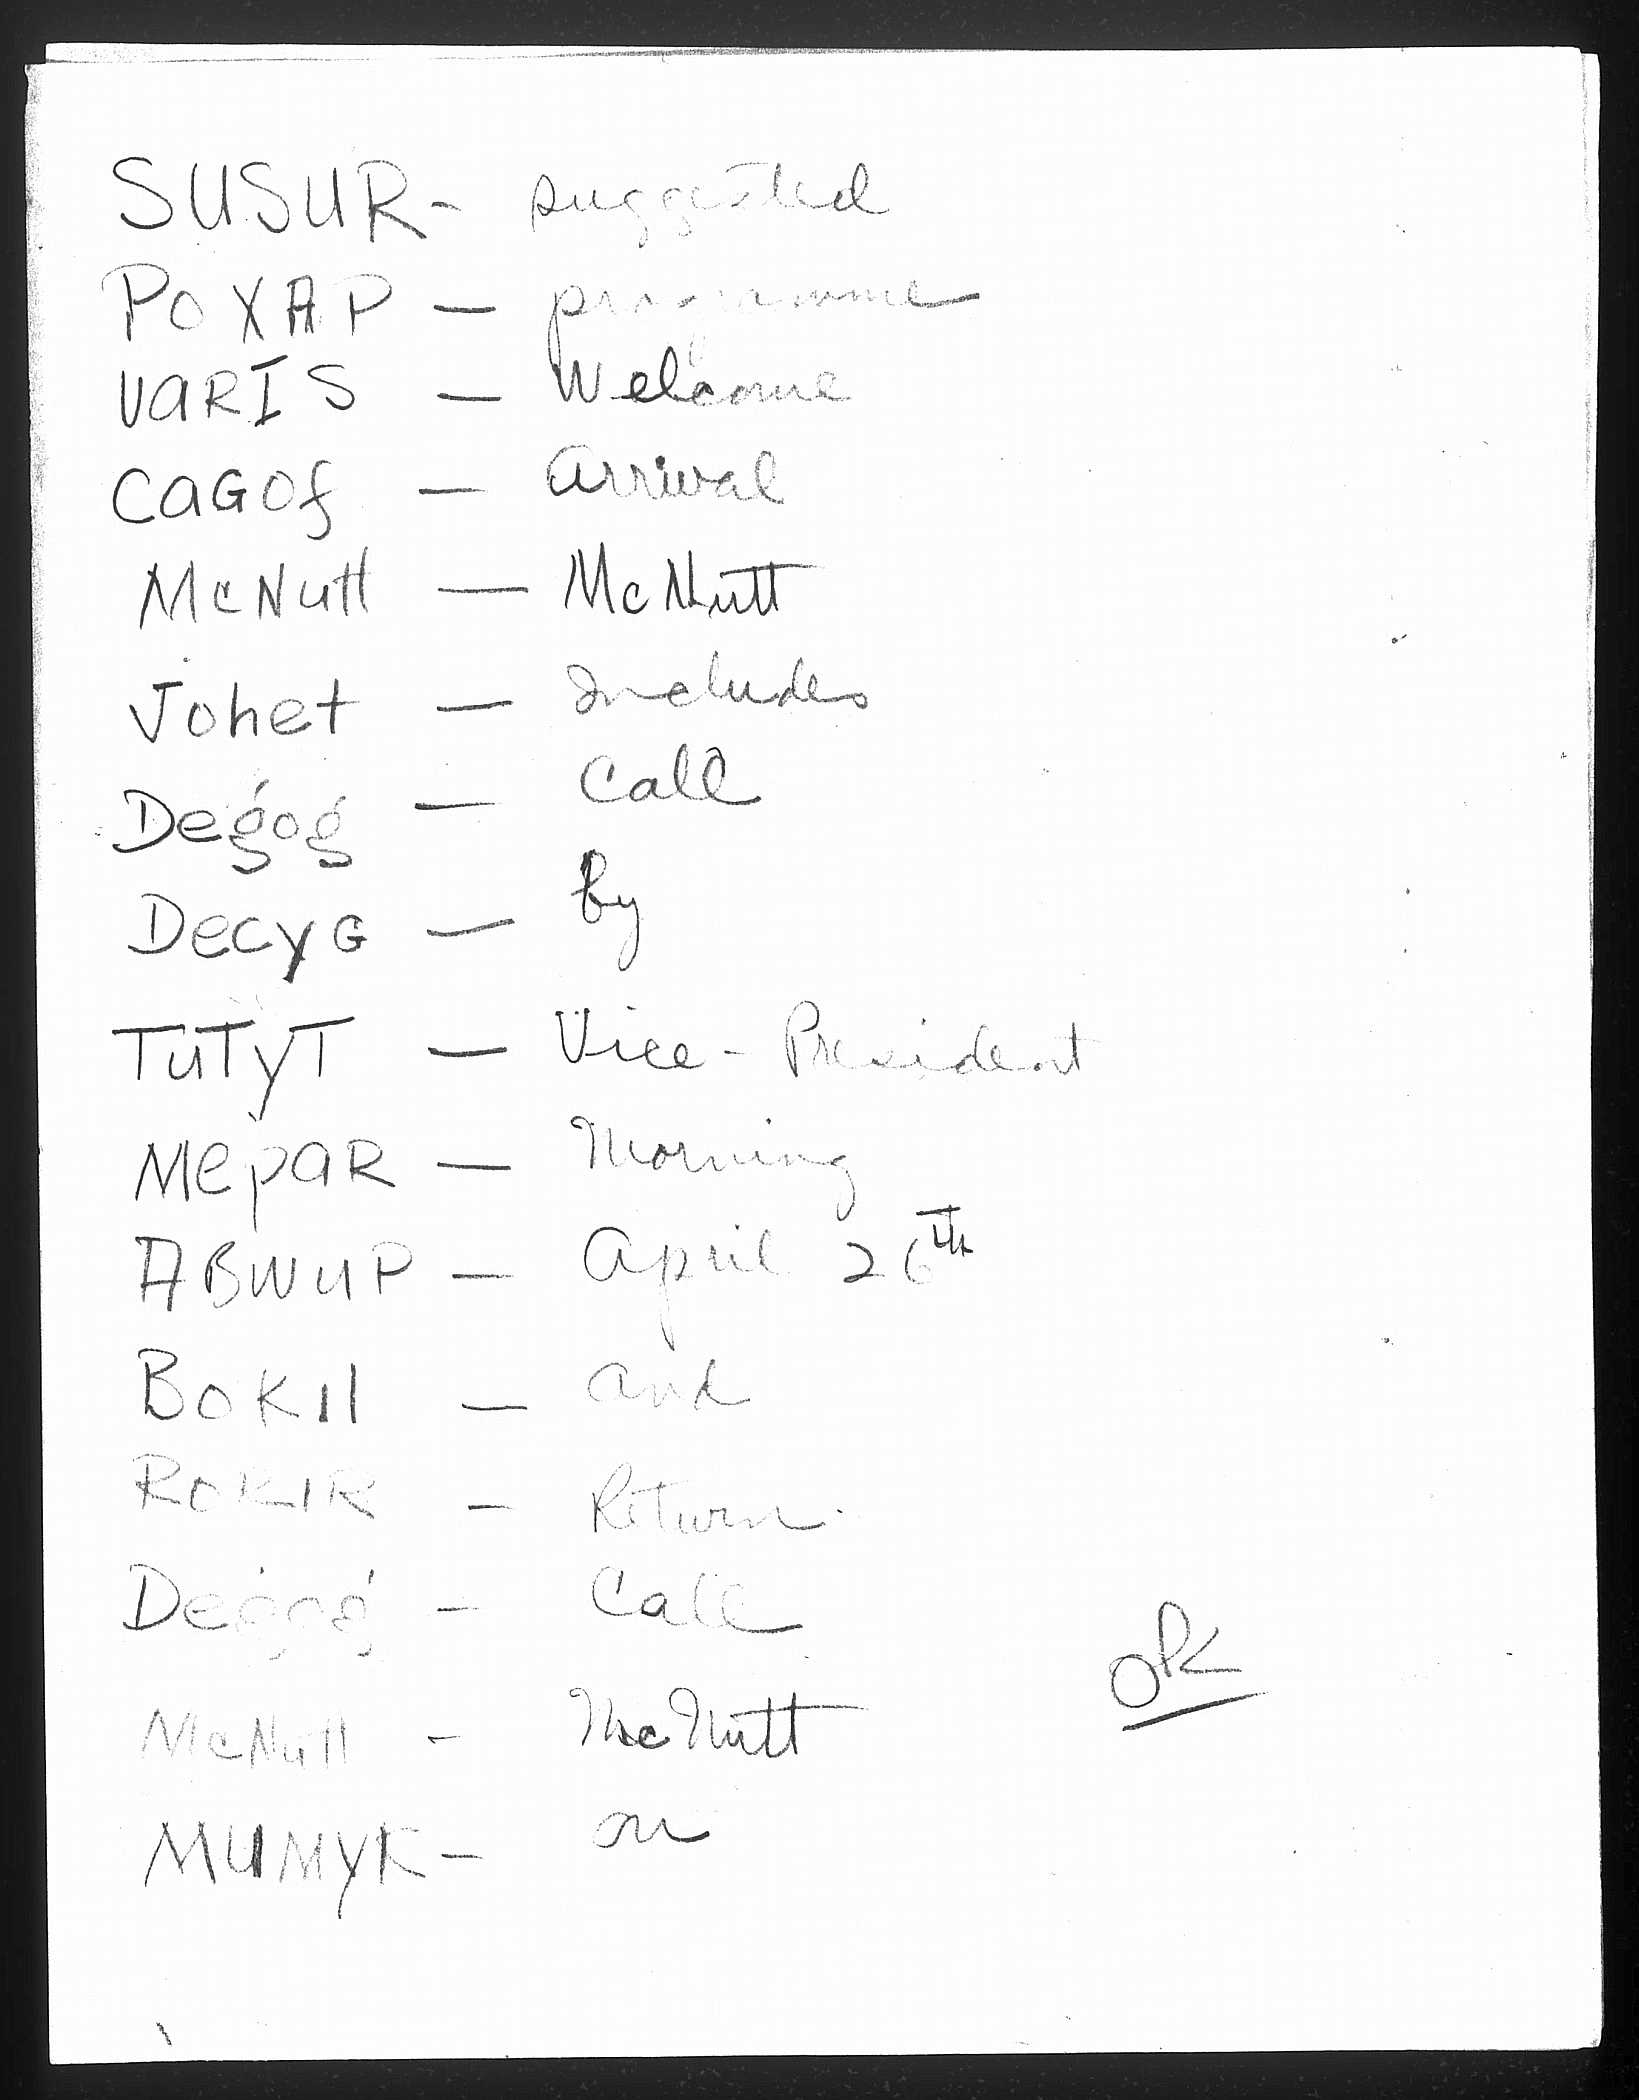 SUSUR - suggested
POXAP — programme
VARIS — Welcome
CAGOf — Arrival
McNutt — McNutt
Johet — Includes
Degog — Call
DecyG — by
TuTyT — Vice-President
MepaR — Morning
ABWUP — April 26th
BOKII — and
ROKIR — Return
Degog — Call
McNutt - McNutt
OK
MUMYK - on